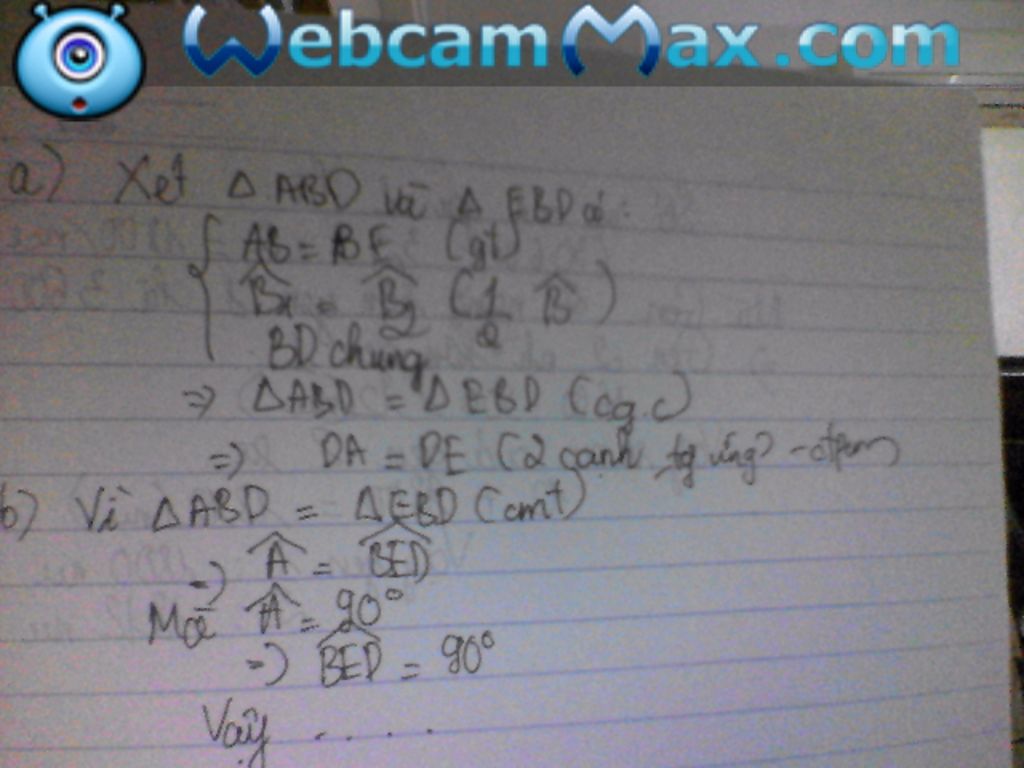 WebcamMax.com
a) Xét Δ ABD và Δ EBD có:
AB = BE (gt)
B̂₁ = B̂₂ (1/2 B̂)
BD chung
=> ΔABD = ΔEBD (c.g.c)
=> DA = DE (2 cạnh tg ứng) - đpcm
b) Vì ΔABD = ΔEBD (cmt)
=> Â = BED̂
Mà Â = 90°
=> BED̂ = 90°
Vậy .....